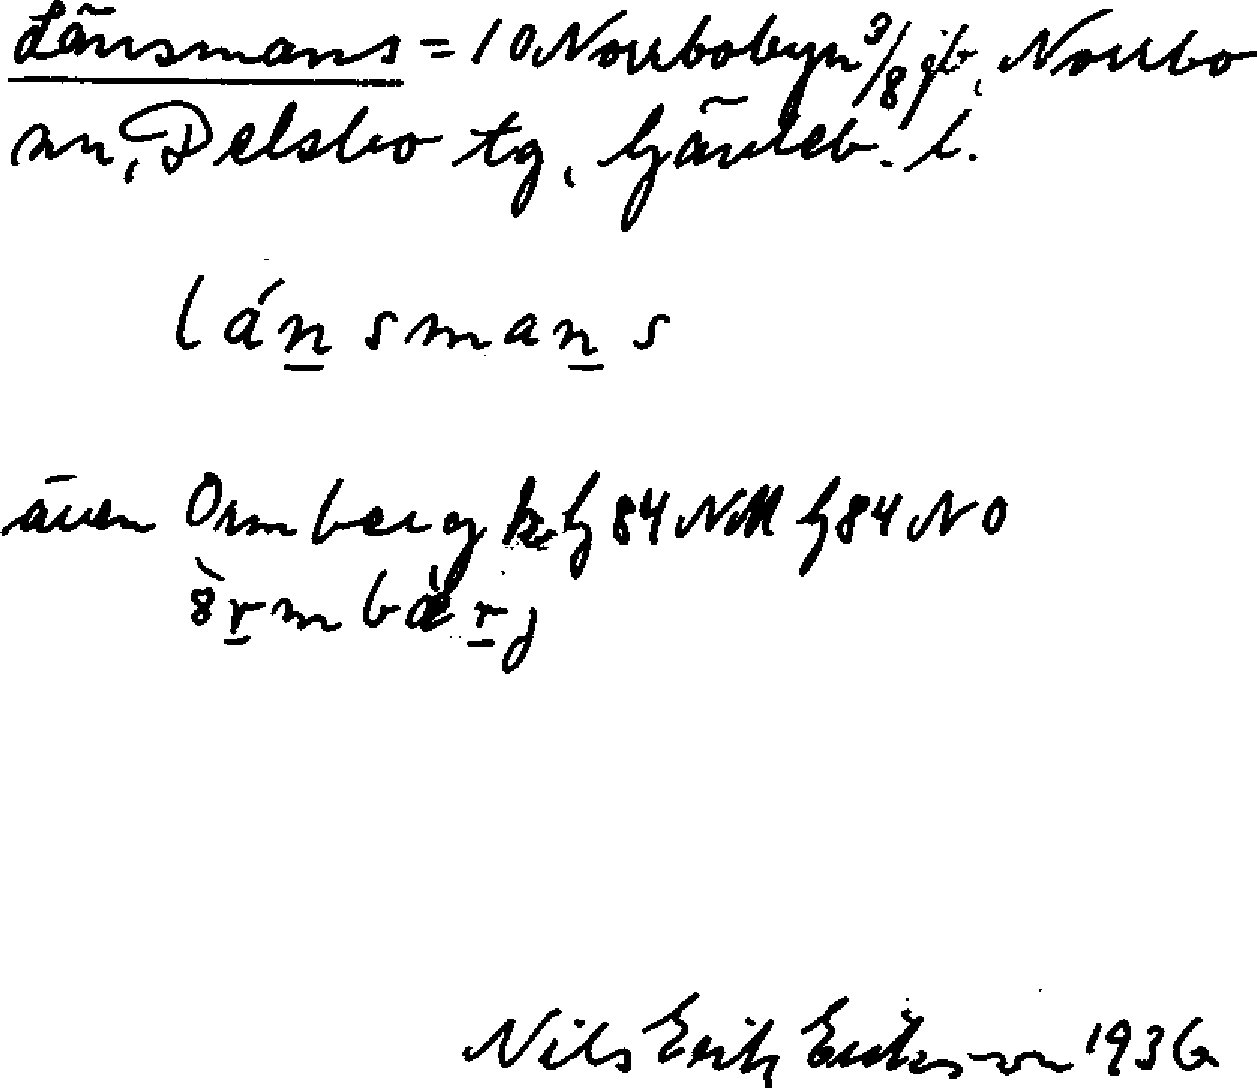 Länsmans = 10 Norrbobyn 3/8 jb, Norrbo
sn, Delsbo tg, Gävleb. l.
lánsmans
även Ormberg k. G 84 NM G 84 NO
òrmbärj
Nils Erik Eriksson 1936